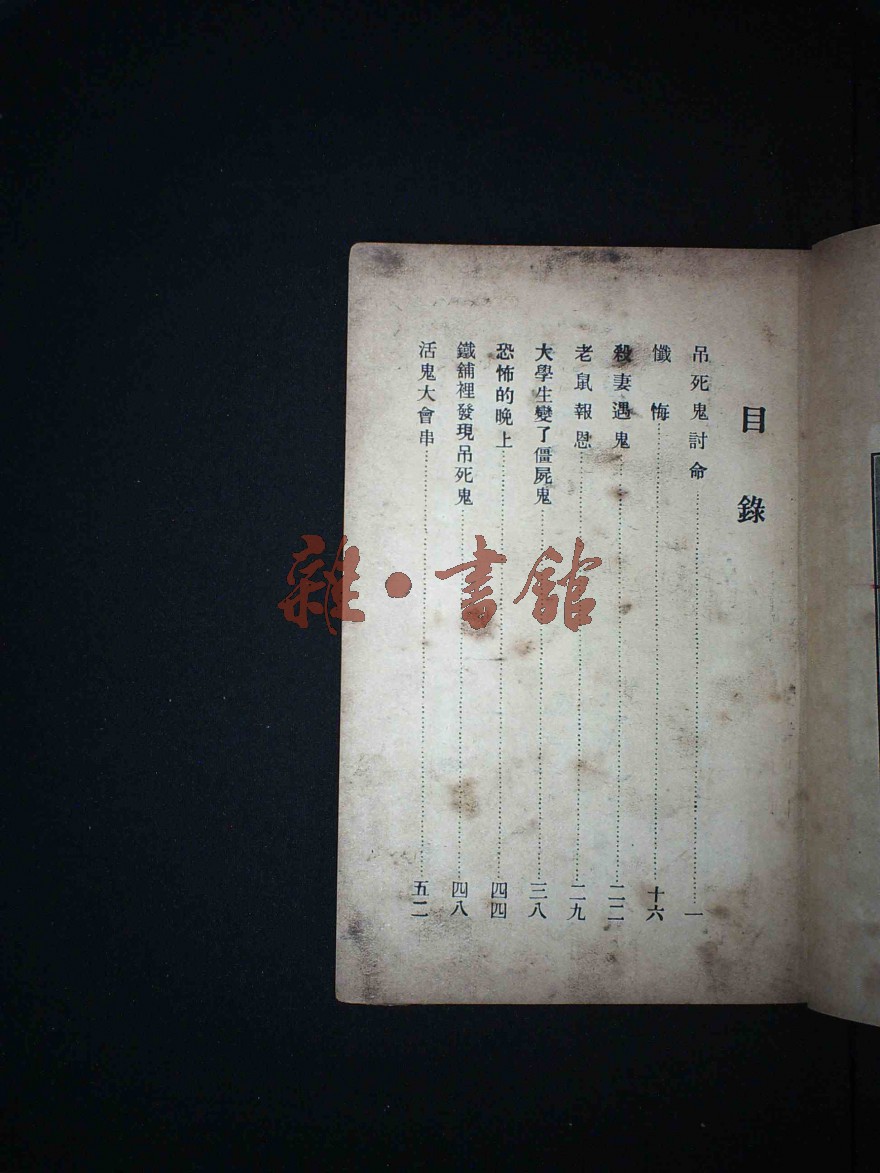 目錄
吊死鬼討命……一
懺悔……十六
殺妻遇鬼……二二
老鼠報恩……二九
大學生變了僵屍鬼……三八
恐怖的晚上……四四
鐵舖裡發現吊死鬼……四八
活鬼大會串……五二
雜·書館